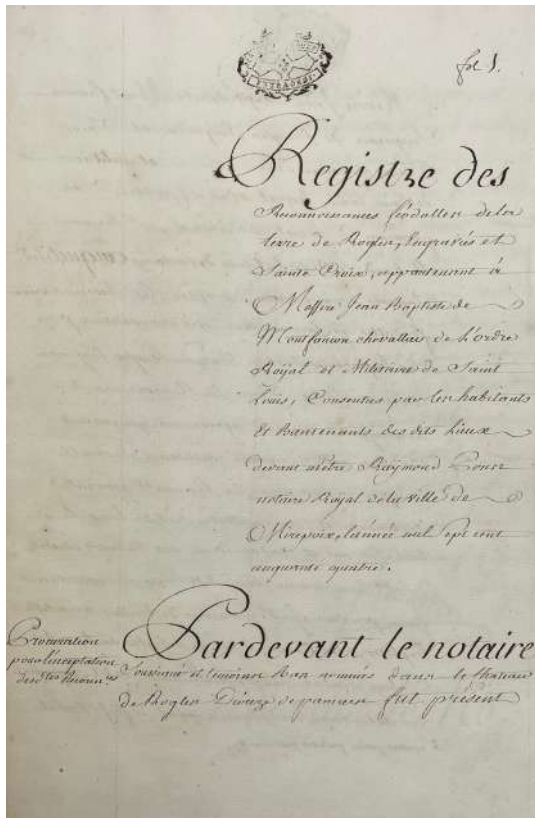 fol 1.
Registre des
Reconnoissances féodalles de la
terre de Rogles, Engraviés et
Sainte Croix, appartenant à
Messire Jean Baptiste de
Montfaucon chevallier de L'ordre
Royal et Militaire de Saint
Louis, Consenties par les habitants
Et bientenants des dits Lieux
devant mêtre Raymond
notaire Royal de la ville de
Mirepoix, l'année mil sept cent
cinquante quatre.
Procuration
pour l'acceptation
desd.tes Reconn.ces
Pardevant le notaire
soussigné et temoins bas nommés dans le Chateau
de Rogles Diocèze de pamiers fut présent